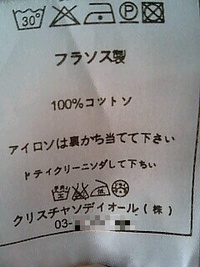 30°
フランス製
100%コットソ
アイロソは裏かち当てて下さい
ドテイクリーニソダして下ちい
クリスチャソディオール(株)
03-